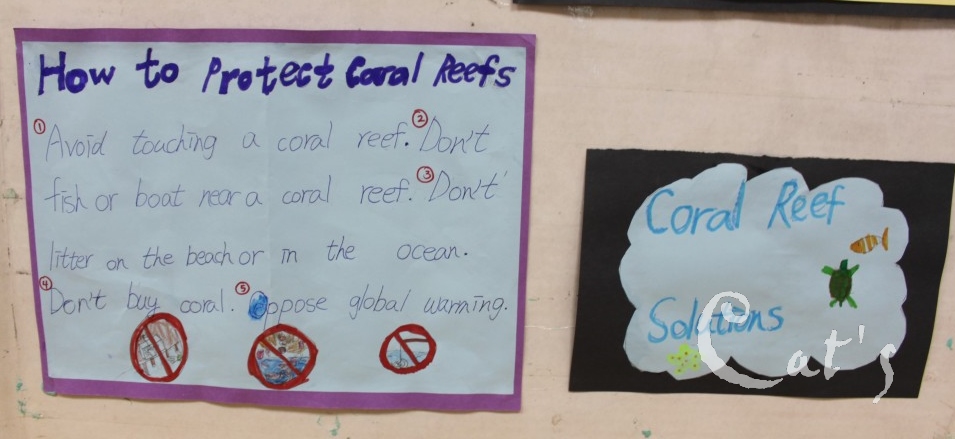 How to Protect Coral Reefs
① Avoid touching a coral reef. ② Don't
fish or boat near a coral reef. ③ Don't
litter on the beach or in the ocean.
④ Don't buy coral. ⑤ Oppose global warming.
Coral Reef
Solutions
Cat's